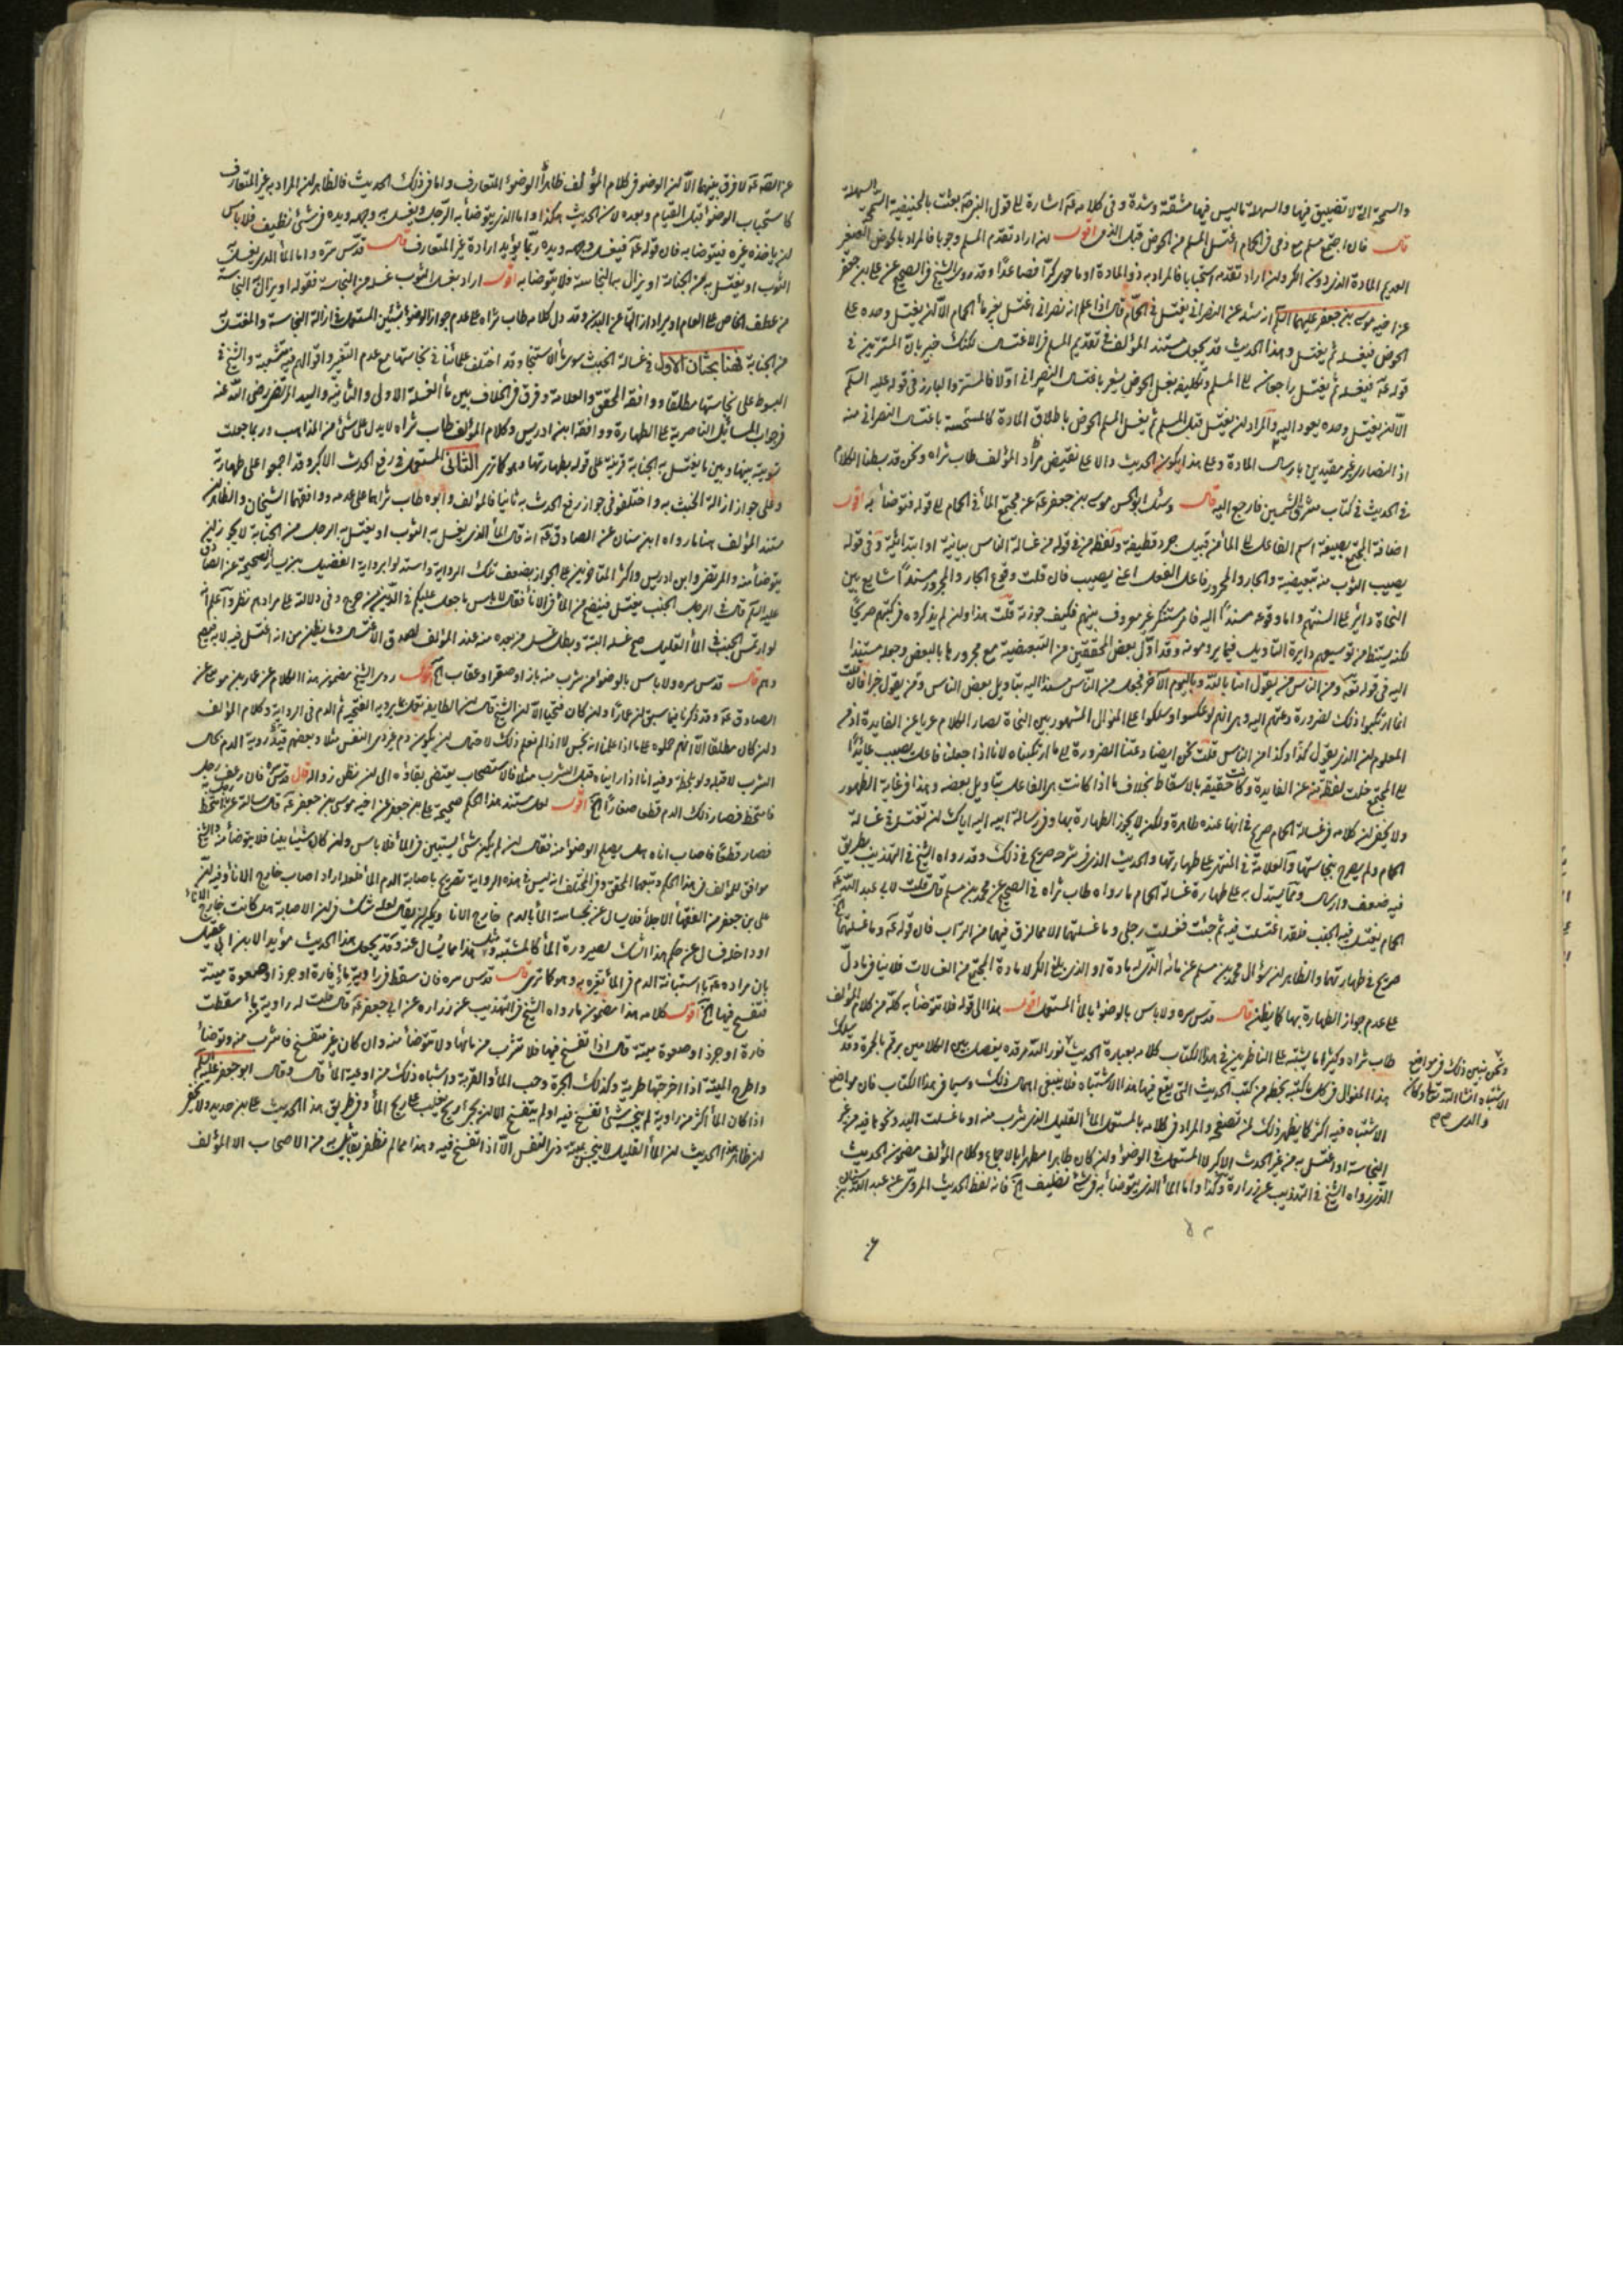 والسمحة التي لا تضييق فيها والسهلة ما ليس فيها مشقة وشدة وفي كلامه اشارة الى قول النبي بعثت بالحنيفية السمحة السهلة
قال فان اجتمع مسلم مع ذمي في الحمام اغتسل المسلم من الحوض قبل الذمي اقول ان اراد تقدم المسلم وجوبا فالمراد بالحوض الصغير
العديم المادة الذي دون الكر وان اراد تقدمه استحبابا فالمراد به ذو المادة او ما حوى كرا فصاعدا وقد روى الشيخ في الصحيح عن علي بن جعفر
عن اخيه موسى بن جعفر عليهما السلم انه سئله عن النصراني يغتسل في الحمام قال اذا علم انه نصراني اغتسل بغير ماء الحمام الا ان يغتسل وحده على
الحوض فيغسله ثم يغتسل وهذا الحديث قد يجعل مستند المؤلف في تقديم المسلم في الاغتسال لكنك خبير بان المستترين في
قوله فيغسله ثم يغتسل راجعان الى المسلم وتكليفه بغسل الحوض يشعر باغتسال النصراني اولا فالمستتر والبارز في قوله عليه السلم
الا ان يغتسل وحده يعود اليه والمراد ان يغتسل قبل المسلم ثم يغسل المسلم الحوض باطلاق المادة كالمستحبة باغتسال النصراني منه
اذ النصارى غير مقيدين بارسال المادة وعلى هذا يكون الحديث دالا على نقيض مراد المؤلف طاب ثراه ونحن قد بسطنا الكلام
في الحديث في كتاب مشرق الشمسين فارجع اليه قال وسئل ابو الحسن موسى بن جعفر عن مجتمع الماء في الحمام الى قوله فتوضأ به اقول
اضافة المجتمع بصيغة اسم الفاعل الى الماء من قبيل جرد قطيفة ولفظ من في قوله من غسالة الناس بيانية او ابتدائية وفي قوله
يصيب الثوب منه تبعيضية والجار والمجرور فاعل الفعل اعني يصيب فان قلت وقوع الجار والمجرور مسندا شايع بين
النحاة داير على السنتهم واما وقوعه مسندا اليه فامر مستنكر غير معروف بينهم فكيف جوزته قلت هذا وان لم يذكروه في كتبهم صريحا
اليه في قوله تعالى ومن الناس من يقول امنا بالله وباليوم الآخر فجعل من الناس مسندا اليه بتاويل بعض الناس ومن يقول خبرا فان قلت
انما ارتكبوا ذلك لضرورة دعتهم اليه وهي انهم لو عكسوا وسلكوا على المنوال المشهور بين النحاة لصار الكلام عريا عن الفايدة اذ من
المعلوم ان الذي يقول كذا وكذا من الناس قلت نحن ايضا دعتنا الضرورة الى ما ارتكبناه لانا اذا جعلنا فاعل يصيب عايدا
الى المجتمع خلت لفظة منه عن الفايدة وكانت حقيقة بالاسقاط بخلاف ما اذا كانت هي الفاعل بتاويل بعضه وهذا في غاية الظهور
ولا يخفى ان كلامه في غسالة الحمام صريح في انها عنده طاهرة ولكن لا يجوز الطهارة بها وفي رسالة ابيه اليه اياك ان تغتسل في غسالة
الحمام ولم يصرح بنجاستها والعلامة في المنتهى على طهارتها والحديث الذي في شرحه صريح في ذلك وقد رواه الشيخ في التهذيب بطريق
فيه ضعف وارسال ومما يستدل به على طهارة غسالة الحمام ما رواه طاب ثراه في الصحيح عن محمد بن مسلم قال قلت لابي عبد الله
الحمام يغتسل فيه الجنب فلقد اغتسلت فيه ثم جئت فغسلت رجلي وما غسلتهما الا مما لزق فيهما من التراب فان قوله وما غسلتهما
صريح في طهارتها والظاهر ان سؤال محمد بن مسلم عن مائه الذي له مادة او الذي بلغ الكر لا مادة المجتمع من الغسالات فلا ينافي ما دل
على عدم جواز الطهارة بها كما يظن قال قدس سره ولا باس بالوضوء بالماء المستعمل اقول هذا الى قوله فلا تتوضأ به كله من كلام المؤلف
طاب ثراه وكثيرا ما يشتبه على الناظرين في هذا الكتاب كلامه بعبارة الحديث نور الله مرقده يفصل بين الكلامين برقم بالحمرة وقد سلك
هذا المنوال في كل ما كتبه بخطه من كتب الحديث التي يقع فيها هذا الاشتباه فلا ينبغي اهمال ذلك وسيما في هذا الكتاب فان مواضع
الاشتباه فيه اكثر كما يظهر ذلك لمن تصفح والمراد في كلامه بالمستعمل الماء القليل الذي شرب منه او ما غسلت اليد ونحوها فيه من غير
النجاسة او اغتسل به من غير الحدث الاكبر لا المستعمل في الوضوء وان كان طاهرا مطهرا بالاجماع وكلام المؤلف مضمونه الحديث
الذي رواه الشيخ في التهذيب عن زرارة وكذا واما الماء الذي يتوضأ به في شئ نظيف فانه لفظ الحديث المروي عن عبد الله بن سنان
ونحن نبين ذلك في مواضع
الاشتباه انشاء الله تعالى وكان
والدي
عن الصادق لا فرق بينهما الا ان الوضوء في كلام المؤلف ظاهر الوضوء المتعارف واما في ذلك الحديث فالظاهر ان المراد به غير المتعارف
كاستحباب الوضوء قبل القيام وبعده لان الحديث هكذا واما الذي يتوضأ به الرجل ويغسل به وجهه ويده في شئ نظيف فلا باس
ان ياخذه غيره فيتوضأ به فان قوله فيغسل وجهه ويده ربما يؤيد ارادة غير المتعارف قال قدس سره واما الماء الذي يغسل به
الثوب او يغتسل به من الجنابة او يزال به النجاسة فلا يتوضأ به اقول اراد بغسل الثوب غسله من النجاسة فقوله او يزال به النجاسة
من عطف الخاص على العام او يراد ازالتها عن البدن وقد دل كلامه طاب ثراه على عدم جواز الوضوء بشيئين المستعمل في ازالة النجاسة والمغتسل
من الجنابة فهنا بحثان الاول في غسالة الخبث سوى ماء الاستنجاء وقد اختلف علمائنا في نجاستها مع عدم التغير واقوالهم فيه متشعبة والشيخ في
المبسوط على نجاستها مطلقا ووافقه المحقق والعلامة وفرق في الخلاف بين ماء الغسلة الاولى والثانية والسيد المرتضى رضي الله عنه
في جواب المسائل الناصرية على الطهارة ووافقه ابن ادريس وكلام المؤلف طاب ثراه لا يدل على شئ من المذاهب وربما جعلت
تسويته بينها وبين ما يغتسل به الجنابة قرينة على قوله بطهارتها وهو كما ترى الثاني المستعمل في رفع الحدث الاكبر وقد اجمعوا على طهارته
وعلى جواز ازالة الخبث به واختلفوا في جواز رفع الحدث به ثانيا فالمؤلف وابوه طاب ثراهما على عدمه ووافقهما الشيخان والظاهر ان
مستند المؤلف هنا ما رواه ابن سنان عن الصادق انه قال الماء الذي يغسل به الثوب او يغتسل به الرجل من الجنابة لا يجوز ان
يتوضأ منه والمرتضى وابن ادريس واكثر المتاخرين على الجواز بضعف تلك الرواية واستدلوا برواية الفضيل بن يسار الصحيحة عن الصادق
عليه السلم قال في الرجل الجنب يغتسل فينتضح من الماء في الاناء فقال لا باس ما جعل عليكم في الدين من حرج وفي دلالته على مرادهم نظر واعلم انه
لو ارتمس الجنب في الماء القليل صح غسله البتة وبطل غسل من بعده منه عند المؤلف لصدق الاغتسال وما يظن من انه اغتسل فيه لا به
قال قدس سره ولا باس بالوضوء من شرب منه باز او صقر او عقاب الخ اقول روى الشيخ مضمون هذا الكلام عن عمار بن موسى عن
الصادق وقد ذكرنا فيما سبق ان عمارا وان كان فطحيا الا ان الشيخ قال ان الطايفة عملت بما يرويه الفطحية ثم الدم في الرواية وكلام المؤلف
وان كان مطلقا الا انهم حملوه على ما اذا علم انه نجس لا اذا لم نعلم ذلك لاحتمال ان يكون دم غير ذي النفس مثلا وبعضهم قيد رؤية الدم بحال
الشرب لا قبله ولو بلحظة وفيه انا اذا راينا قبل الشرب مثلا فالاستصحاب يقتضي بقاؤه الى ان نظن زواله قال قدس سره فان رعف رجل
فامتخط فصار ذلك الدم قطعا صغارا الخ اقول لعل مستند هذا الحكم صحيحة علي بن جعفر عن اخيه موسى بن جعفر قال سالته عن رجل امتخط
فصار قطعا فاصاب اناءه هل يصلح الوضوء منه فقال ان لم يكن شئ يستبين في الماء فلا باس وان كان شيئا بينا فلا يتوضأ منه والشيخ
موافق للمؤلف في هذا الحكم وتبعهما المحقق وفي المختلف انه ليس في هذه الرواية تصريح باصابة الدم الماء فلعله اراد اصاب خارج الاناء وفيه ان
علي بن جعفر من الفقهاء الاجلاء فلا يسال عن نجاسة الماء بالدم خارج الاناء ويمكن ان يقال لعله شك في ان الاصابة هل كانت خارج الاناء
او داخله فسال عن حكم هذا الشك لصيرورة الماء كالمشتبه ومثل هذا مما يسال عنه وقد يجعل هذا الحديث مؤيدا لابن ابي عقيل
بان مراده باستبانة الدم في الماء تغيره به وهو كما ترى قال قدس سره فان سقط في راوية ماء فارة او جرذ او صعوة ميتة
فتفسخ فيها الخ اقول كلامه هذا مضمون ما رواه الشيخ في التهذيب عن زرارة عن ابي جعفر قال قلت له راوية ماء سقطت
فارة او جرذ او صعوة ميتة قال اذا تفسخ فيها فلا تشرب من مائها ولا تتوضأ منه وان كان غير متفسخ فاشرب منه وتوضأ
واطرح الميتة اذا اخرجتها طرية وكذلك الجرة وحب الماء والقربة واشباه ذلك من اوعية الماء قال وقال ابو جعفر عليه السلم
اذا كان الماء اكثر من راوية لم ينجسه شئ تفسخ فيه او لم يتفسخ الا ان يجئ ريح يغلب على ريح الماء وفي طريق هذا الحديث علي بن حديد ولا يخفى
ان ظاهر هذا الحديث ان الماء القليل لا ينجس بميتة ذي النفس الا اذا تفسخ فيه وهذا مما لم نظفر بقائل به من الاصحاب الا المؤلف